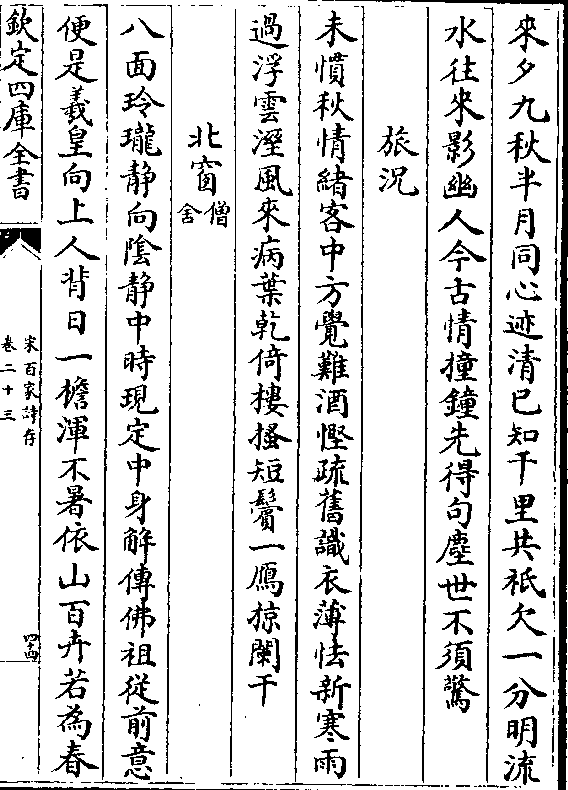 來夕九秋半月同心迹清已知千里共祇欠一分明流
水往來影幽人今古情撞鐘先得句塵世不須驚
旅況
未慣秋情緒客中方覺難酒慳疏舊識衣薄怯新寒雨
過浮雲溼風來病葉乾倚樓搔短鬢一鴈掠闌干
北窗僧舍
八面玲瓏静向陰静中時現定中身解傳佛祖從前意
便是羲皇向上人背日一檐渾不暑依山百卉若為春
欽定四庫全書
宋百家詩存
卷二十三
四十四